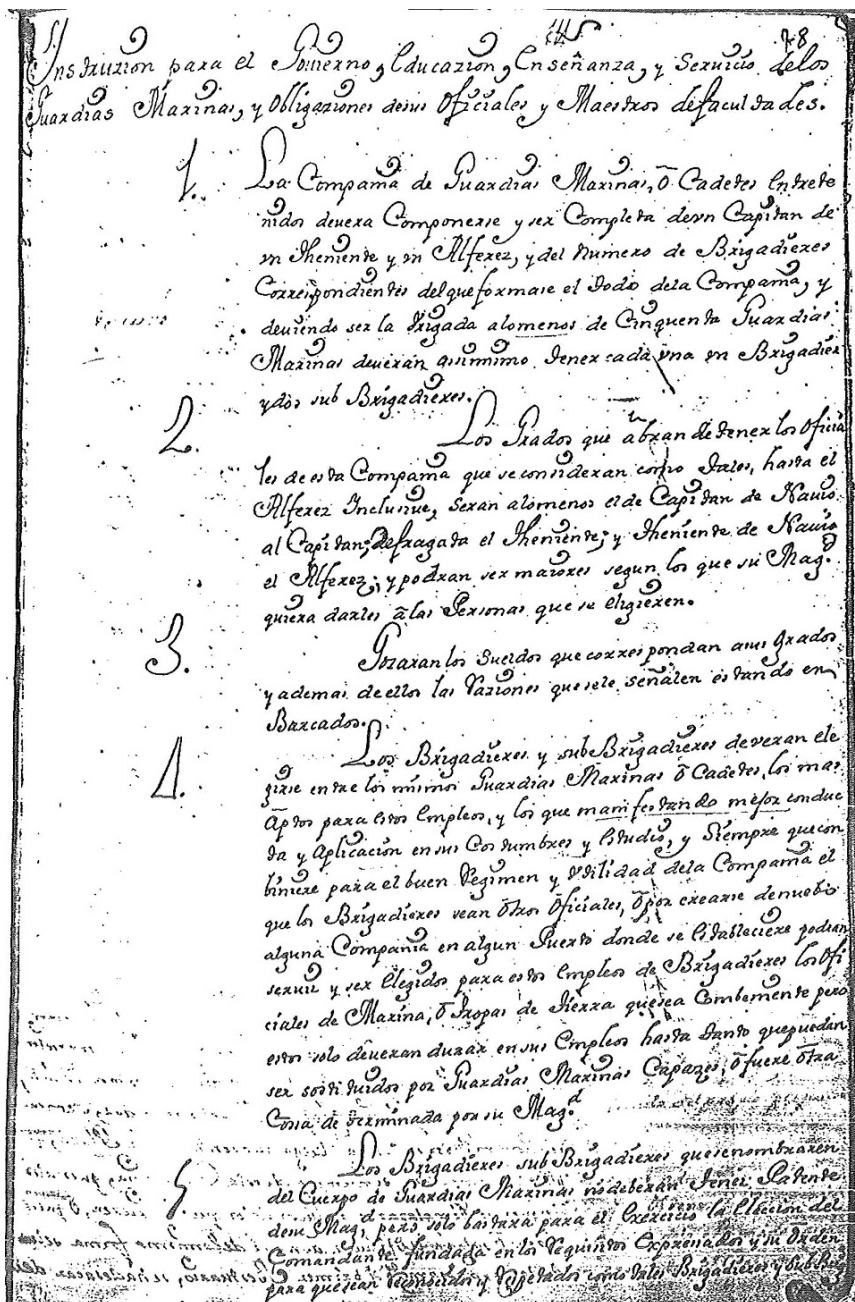 28
Instruzion para el Govierno, Educazion, Enseñanza, y Servicio delos
Guardias Marinas, y Obligaziones desus Oficiales y Maestros defaculdades.
1. La Compañia de Guardias Marinas, ō Cadetes Entrete
nidos devera Componerse y ser Completa devn Capitan de
vn Theniente y vn Alferez, y del Numero de Brigadieres
Correspondientes delque formase el todo dela Compañia, y
deviendo ser la Brigada alomenos de Cinquenta Guardias
Marinas deveran assimismo tener cada vna vn Brigadier
ydos sub Brigadieres.
2. Los Grados que abran detener los Oficia
les de esta Compañia que se consideran como tales, hasta el
Alferez Inclusive, Seran alomenos el de Capitan de Navio
al Capitan; defragata el Theniente; y Theniente de Navio
el Alferez; y podran ser maiores segun los que su Mag.d
quiera darles ā las Personas que se eligieren.
3. Gozaran los Sueldos que correspondan asus grados
y ademas de ellos las Raziones que sele señalen estando en
Barcados.
4. Los Brigadieres y subBrigadieres deveran ele
girse entre los mismos Guardias Marinas ō Cadetes, los mas
Aptos para estos Empleos, y los que manifestando mejor conduc
ta y Aplicacion en sus Costumbres y Estudio, y Siempre que con
biniere para el buen Regimen y Vtilidad dela Compañia el
que los Brigadieres sean ōtros ōficiales, ō por crearse denuebo
alguna Compañia en algun Puerto donde se Estableciere podran
servir y ser Elegidos para estos Empleos de Brigadieres los Ofi
ciales de Marina, ō tropas de tierra quesea Combeniente pero
estos solo deveran durar en sus Empleos hasta tanto quepuedan
ser sostituidos por Guardias Marinas Capazes, ō fuere ōtra
Cosa determinada por su Mag.d
5. Los Brigadieres sub Brigadieres quesenombraren
del Cuerpo de Guardias Marinas nodeberan tener Patente
desu Mag.d pero solo bastara para el Exercicio la Eleccion del
Comandante fundada en los Requisitos Expresados y su Orden
para quesean Reconocidos y Respetados como tales Brigadieres y Sub Brig